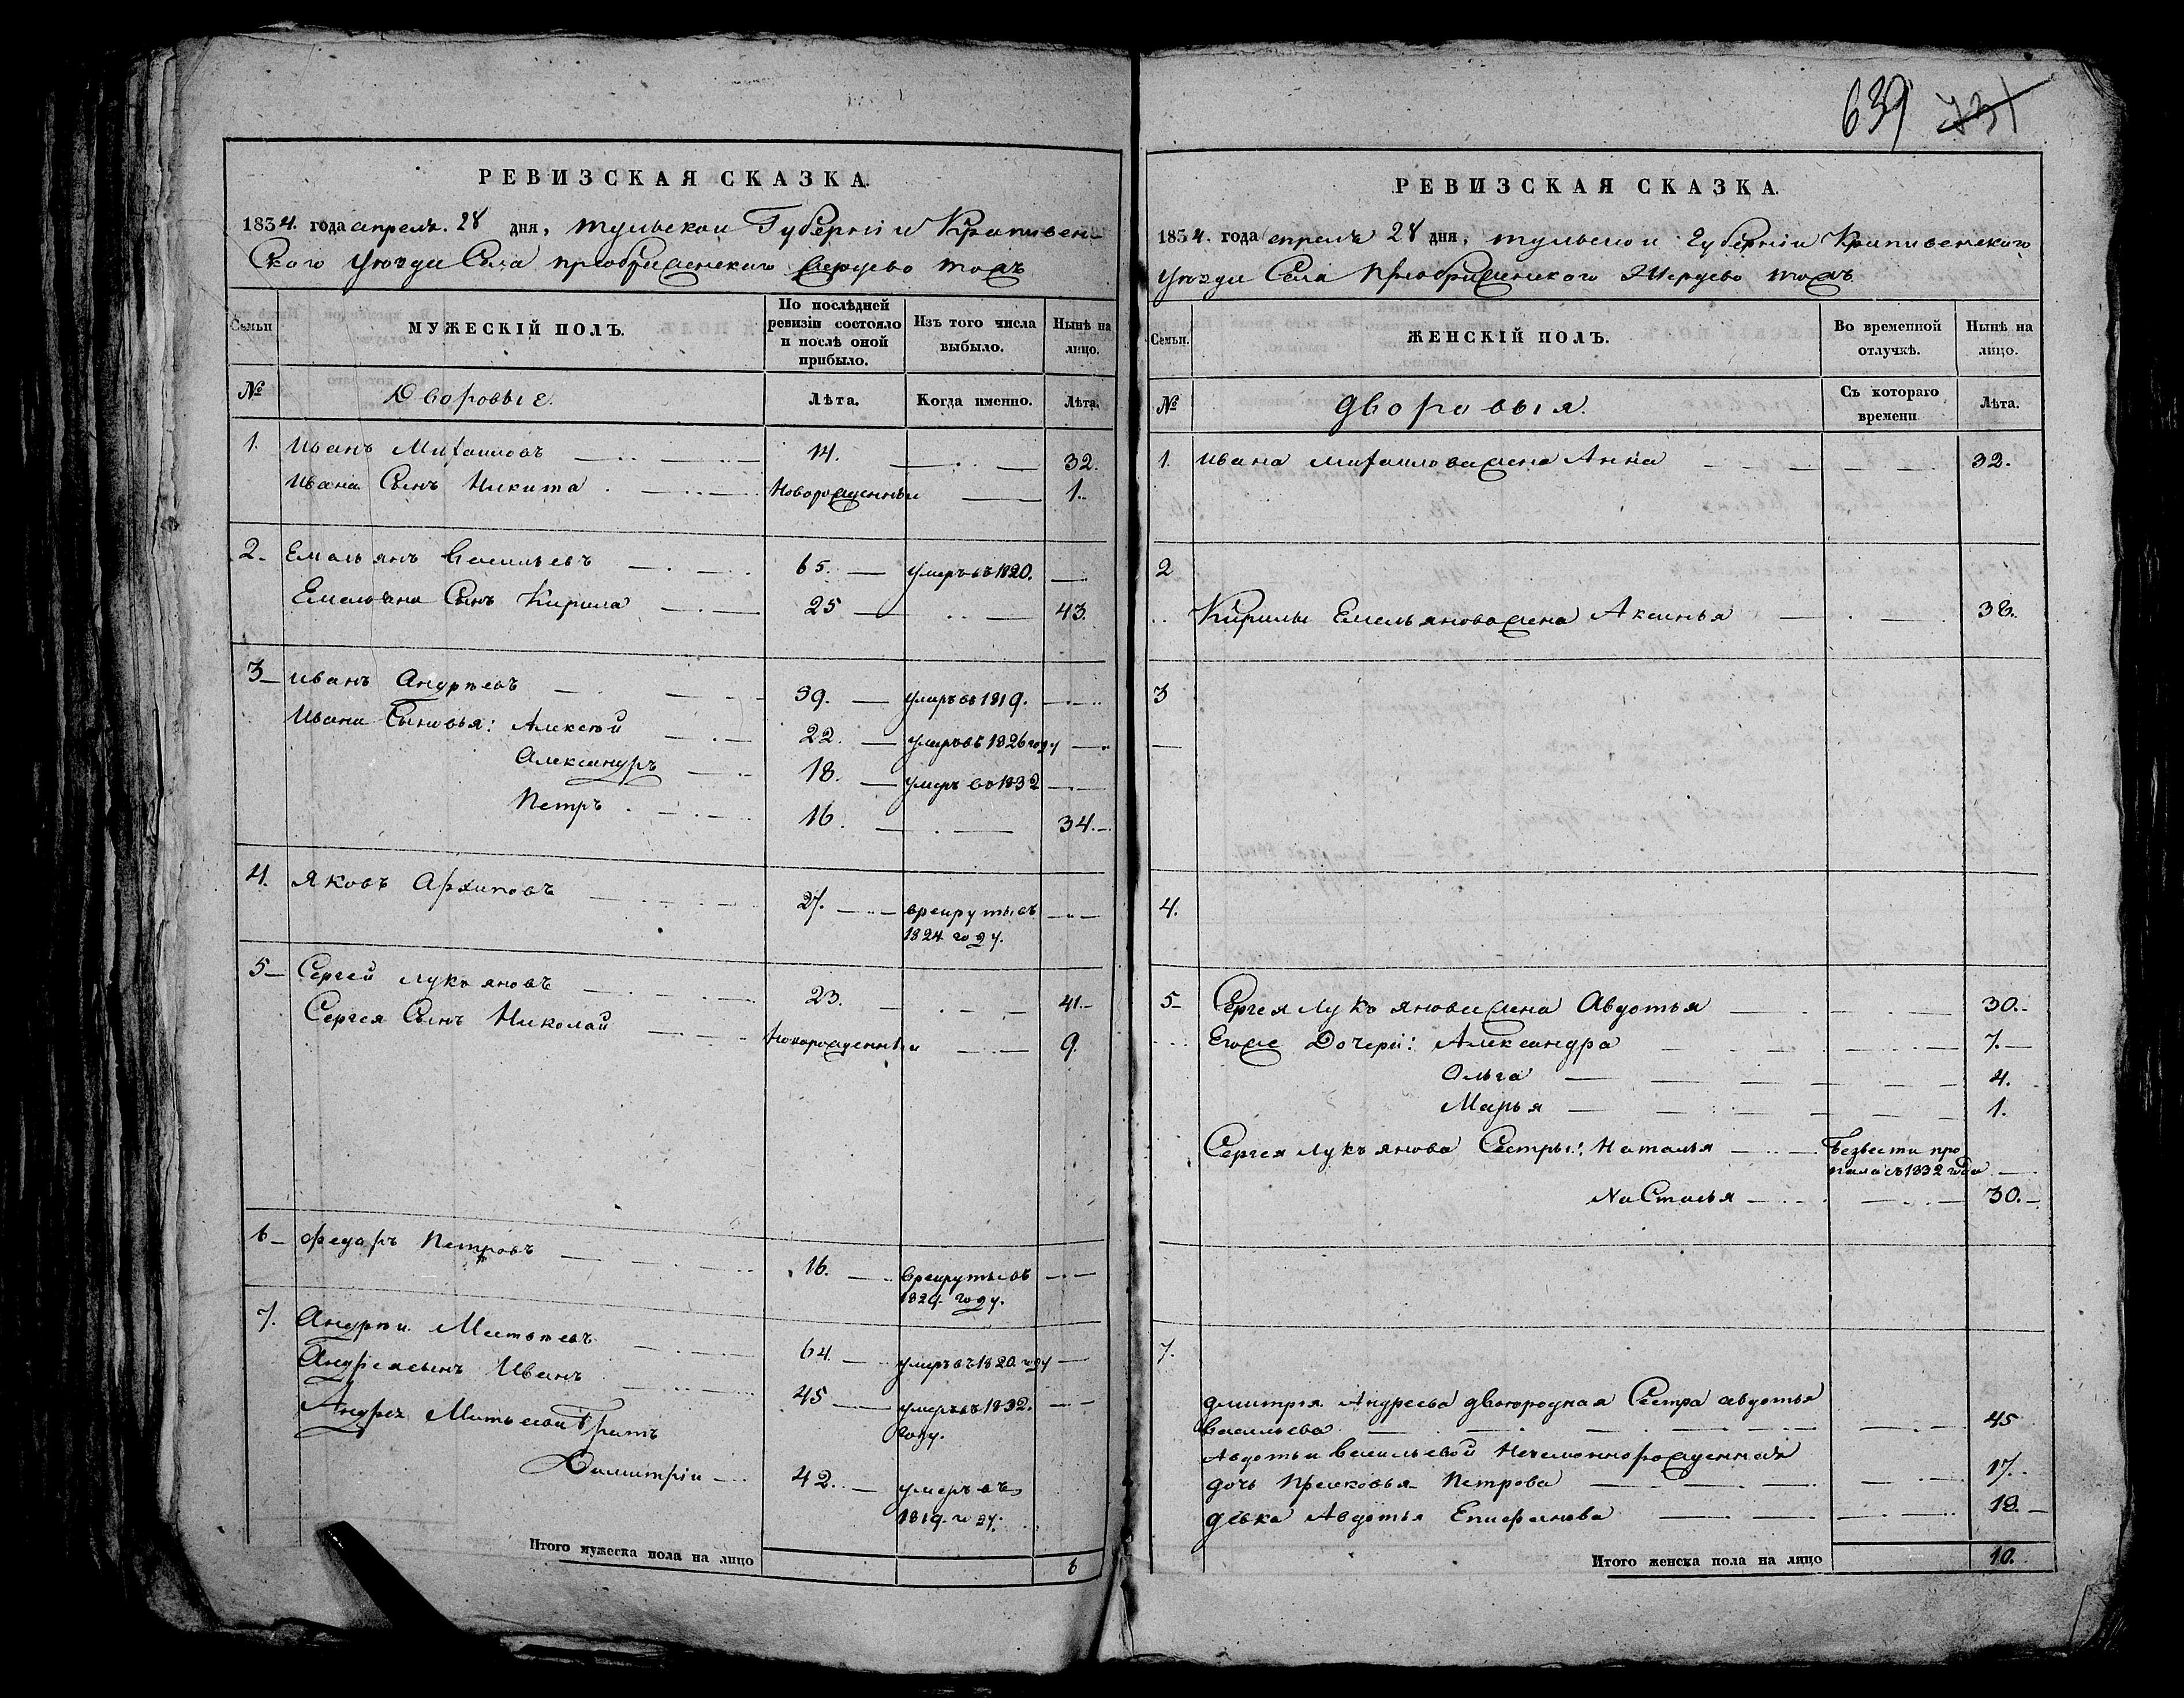 РЕВИЗСКАЯ СКАЗКА.
1834. года апреля. 28 дня, Тульской Губернiи Крапивен-
Ского Уѣзда Села преображенскаго Жердево тожъ
Семьи
МУЖЕСКІЙ ПОЛЪ.
По послѣдней ревизіи состояло и послѣ оной прибыло.
Изъ того числа выбыло.
Нынѣ на лицо.
№ Дворовые. Лѣта. Когда именно. Лѣта.
1. Иванъ Михаиловъ 14. 32.
Ивана Сынъ Никита Новорожденный 1.
2. Емельянъ Васильевъ 65. умеръ въ 1820.
Емельяна Сынъ Кирила 25 43.
3 Иванъ Андреевъ 39. умеръ въ 1819.
Ивана Сыновья: Алексѣй 22. умеръ въ 1826 году
Александръ 18. умеръ во 1832
Петръ 16. 34.
4. Яковъ Архиповъ 27. в рекруты въ
1824 году.
5 Сергей Лукъяновъ 23. 41.
Сергея Сынъ Николай Новорожденный 9.
6 Федаръ Петровъ 16. в рекруты въ
1829. году.
7. Андрей Матвеевъ 64. умеръ въ 1820. году
Андрея сынъ Иванъ 45 умеръ въ 1832.
году.
Андрея Матвеева братъ
Димитрiи 42. умеръ въ
1819. году.
Итого мужеска пола на лицо 6
639 731
РЕВИЗСКАЯ СКАЗКА.
1834. года апреля 28 дня, Тульской Губернiи Крапивенского
Уѣзда Села Преображенского Жердево тожъ
Семьи.
ЖЕНСКІЙ ПОЛЪ.
Во временной отлучкѣ.
Нынѣ на лицо.
№ Дворовыя. Съ котораго времени Лѣта.
1. Ивана Михаилова жена Анна 32.
2
Кирилы Емельянова жена Аксинья 38.
3
4.
5 Сергея Лукъянова жена Авдотья 30.
Егоже Дочери: Александра 7.
Ольга 4.
Марья 1.
Сергея Лукъянова Сестры: Наталья Безвести про
пала съ 1832 года
НаСтасья 30.
7.
Дмитрия Андреева двоюродная Сестра авдотья
Васильева 45
Авдотьи Васильевой Незаконнорожденная
дочь Прасковья Петрова 17.
девка Авдотья Епифанова 18.
Итого женска пола на лицо 10.